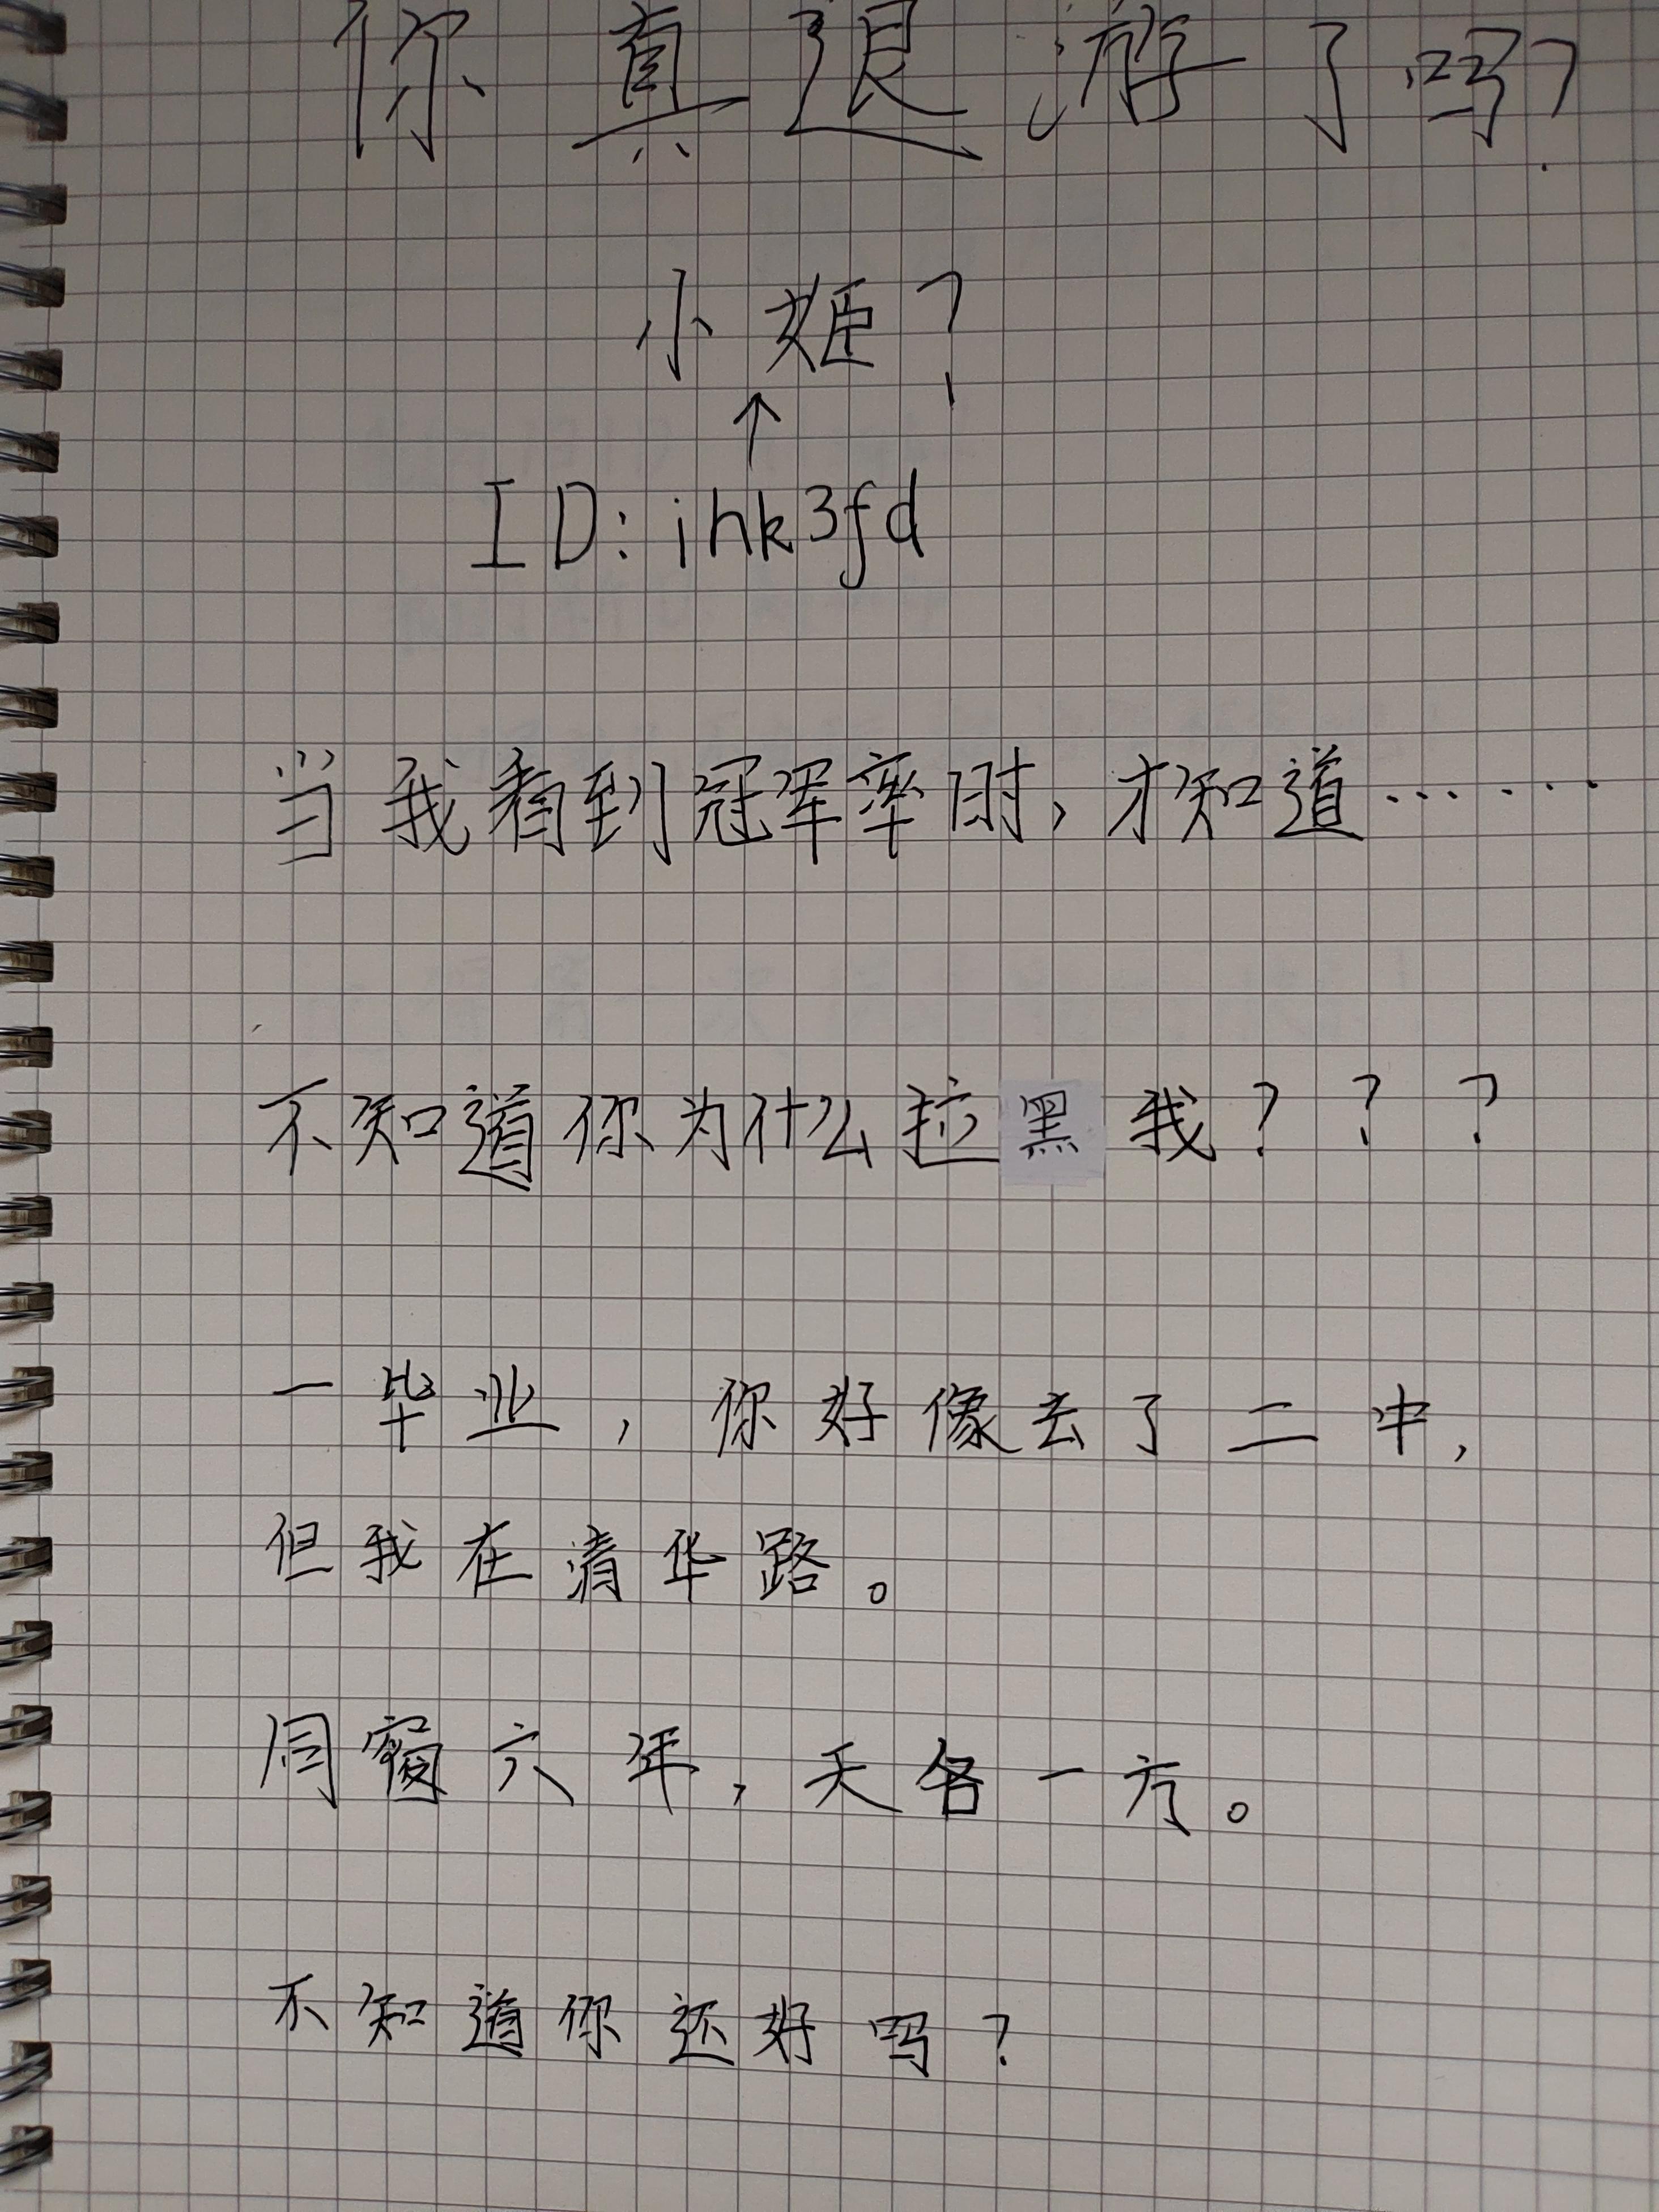 你真退游了吗?
小姬?
↑
ID: ink3fd
当我看到冠军率时,才知道……
不知道你为什么拉黑我???
一毕业,你好像去了二中,
但我在清华路。
同窗六年,天各一方。
不知道你还好吗?